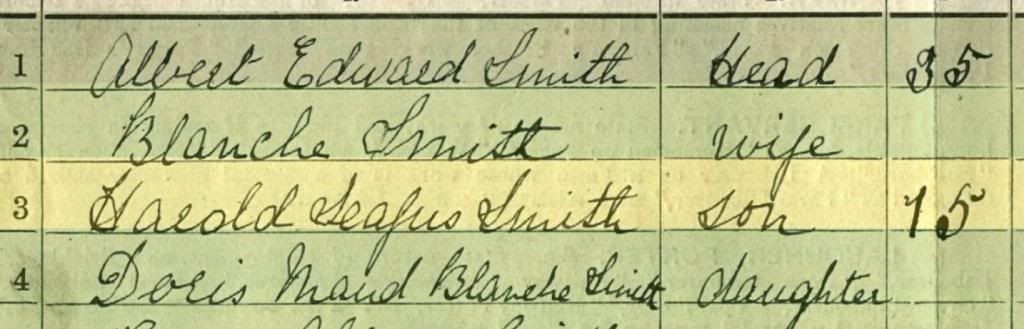 1 Albert Edward Smith Head 35
2 Blanche Smith wife
3 Harold Seafus Smith son 15
4 Doris Maud Blanche Smith daughter